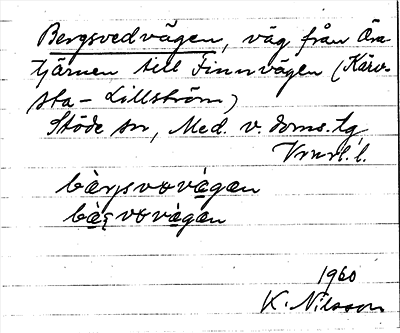 Bergsvedvägen, väg från Öra-
tjärnen till Finnvägen (Kärv-
sta - Lillström)
Stöde sn, Med. v. doms. tg
l.
bärjsvevägan
vägan
1960
K. Nilsson